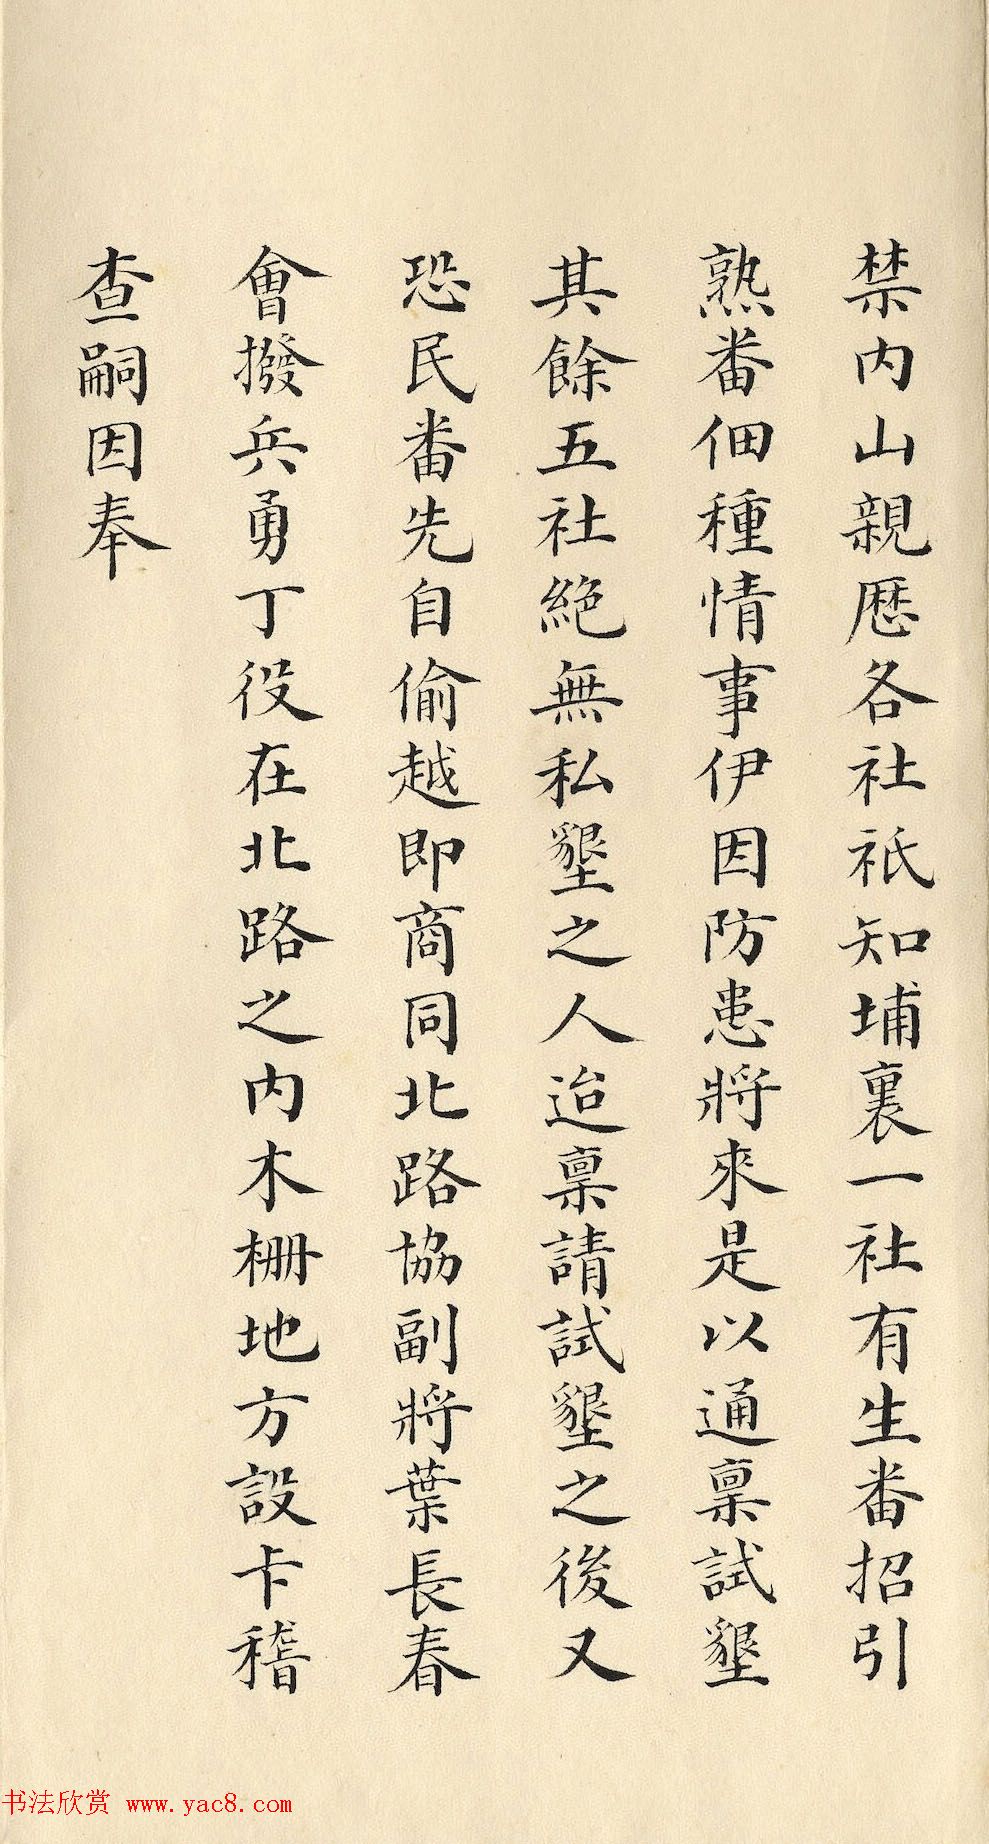 禁内山親厯各社祇知埔裏一社有生番招引
熟番佃種情事伊因防患將來是以通稟試墾
其餘五社絕無私墾之人迨稟請試墾之後又
恐民番先自偷越即商同北路協副將葉長春
會撥兵勇丁役在北路之内木柵地方設卡稽
查嗣因奉
书法欣赏 www.yac8.com